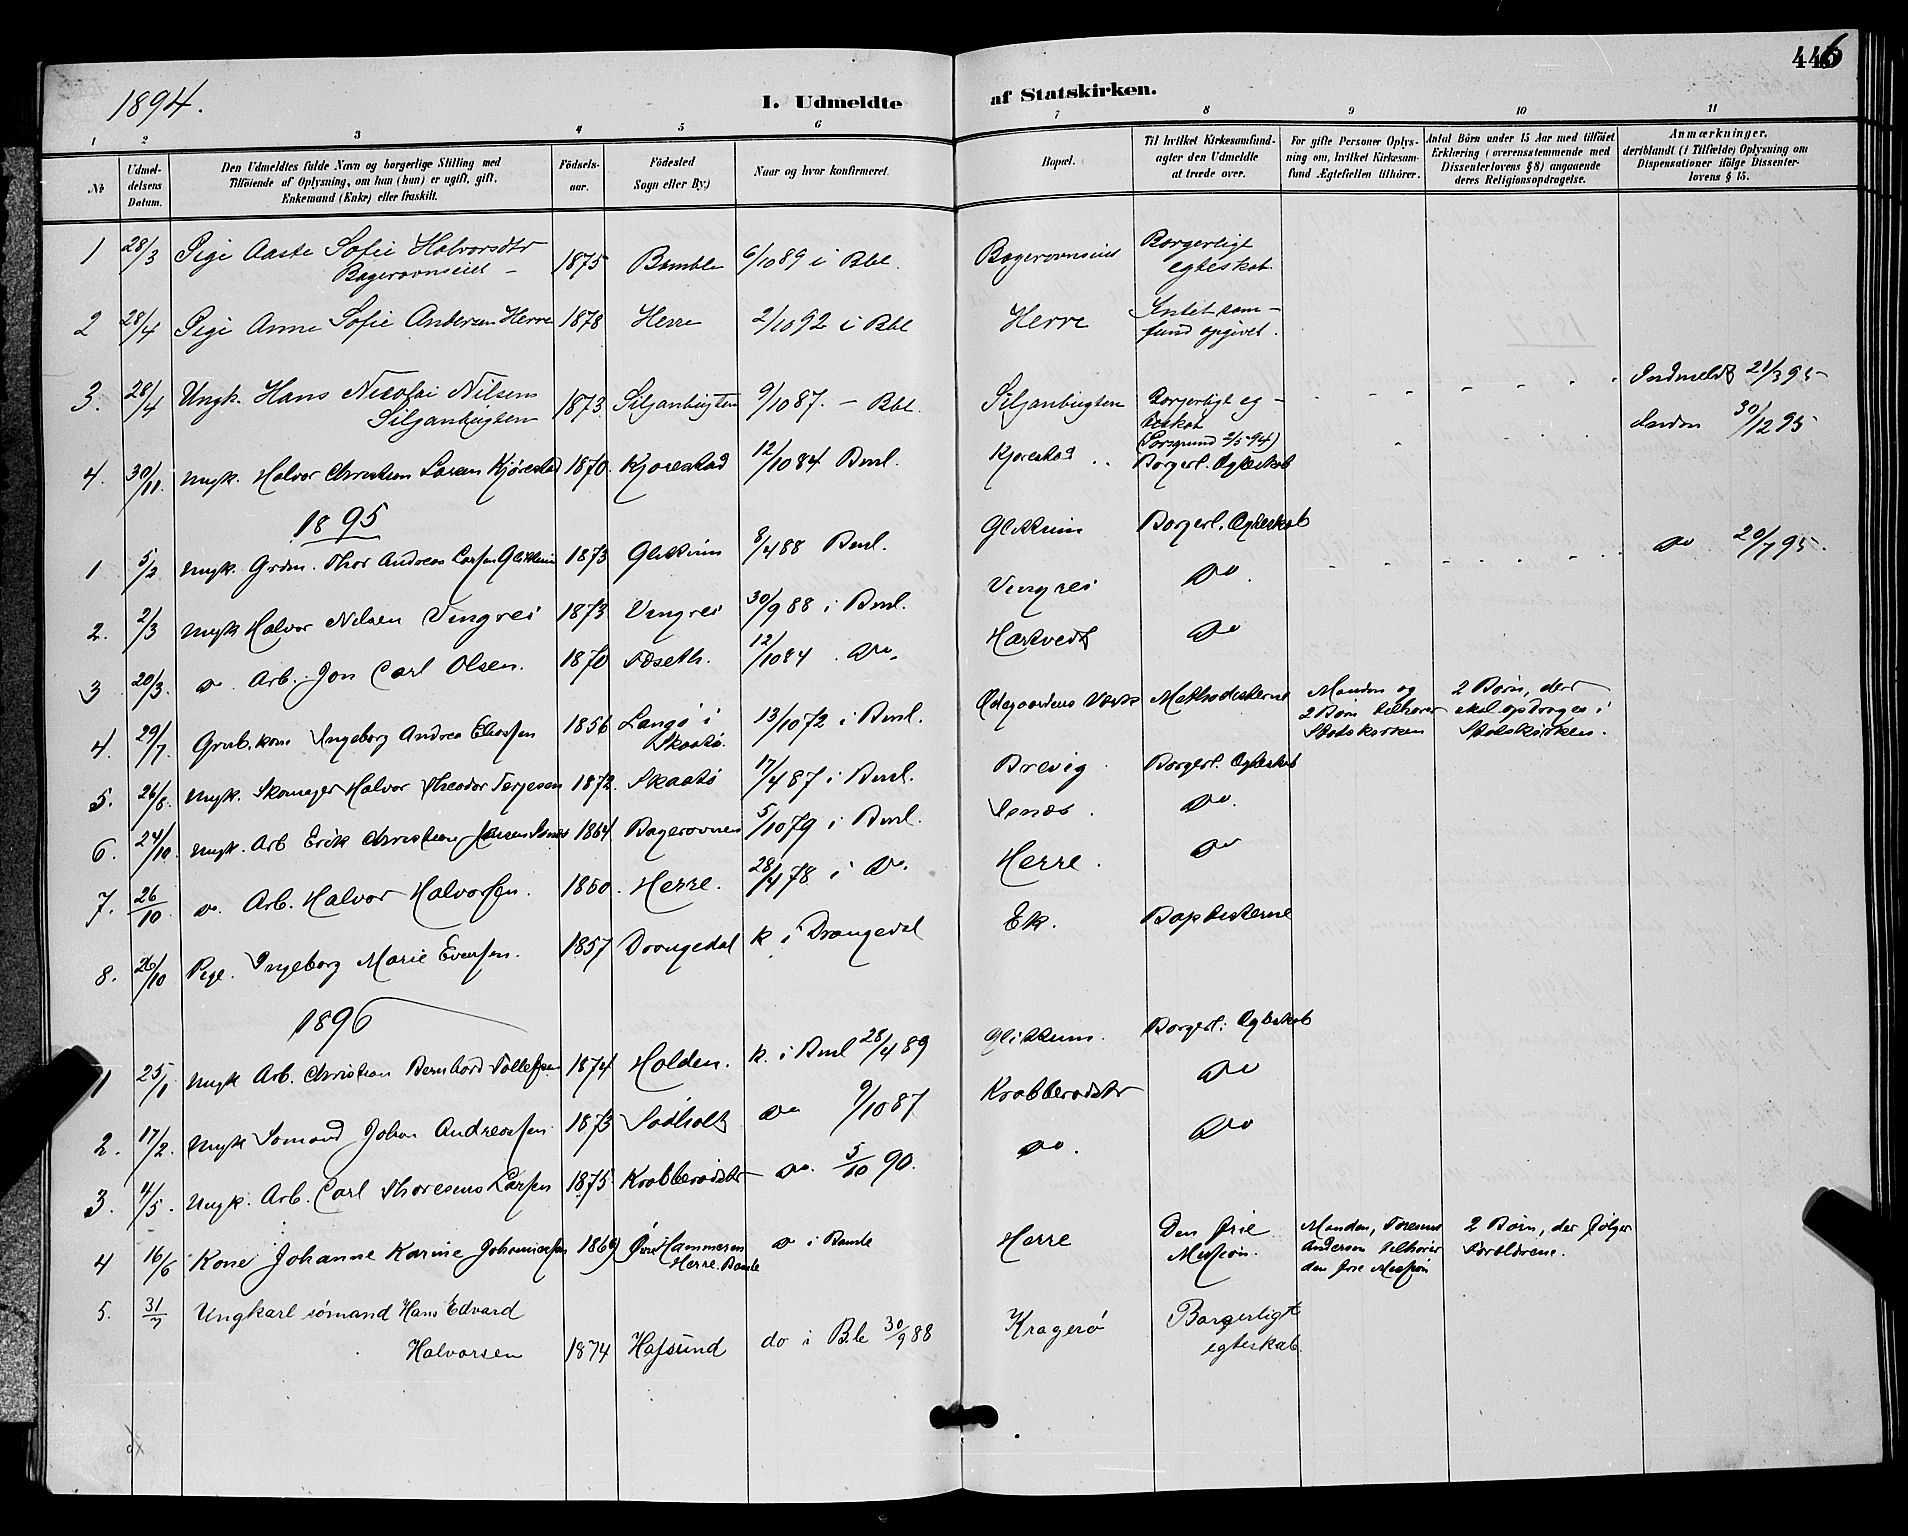 446
1894.
I. Udmeldte af Statskirken.
1 2 3 4 5 6 7 8 9 10 11
No
Udmeldelsens Datum.
Den Udmeldtes fulde Navn og borgerlige Stilling med
Tilføiende af Oplysning, om han (hun) er ugift, gift,
Enkemand (Enke) eller fraskilt.
Fødselsaar.
Fødested
Sogn eller By.)
Naar og hvor konfirmeret.
Bopæl.
Til hvilket Kirkesamfund agter den Udmeldte at træde over.
For gifte Personer Oplysning om, hvilket Kirkesamfund Ægtefællen tilhører.
Antal Børn under 15 Aar med tilføiet
Erklæring (overensstemmende med
Dissenterlovens §8) angaaende
deres Religionsopdragelse.
Anmærkninger,
deriblandt (i Tilfælde) Oplysning om
Dispensationer ifølge Dissenterlovens § 15.
1 28/3 Pige Aaste Sofie Halvorsdtr Bagerovnseiet 1875 Bamble 6/10 89 i Bbl. Bagerovnseiet Borgerligt egteskab.
2 28/4 Pige Anne Sofie Andersen Herre 1878 Herre 2/10 92 i Bbl Herre Intet samfund opgivet.
3. 28/4 Ungk. Hans Nicolai Nilsen Siljanbugten 1873. Siljanbugten 9/10 87. - Bbl. Siljanbugten Borgerligt egteskab (Porsgrund 2/5 94) Indmeldt 21/3 95
4. 30/11. Ungk. Halvor Christian Larsen Kjørestad 1870. Kjørestad 12/10 84 Baml. Kjørestad Borgerl. Egteskab 30/12 95
1895
1 5/2 Ungk. Grdm. Thor Andreas Larssen Glittum 1873 Glittum 8/4 88 Baml. Glittum Borgerl. Egteskab Do 20/7 95.
2. 2/3 Ungk Halvor Nilsen Vingrei 1873 Vingrei 30/9 88 i Baml. Vingrei Do.
3 20/3. Do. Arb. Jon Carl Olsen. 1870 Foseth. 12/10 84. Do. Hartvedt Do
4. 29/7. Grub. kone Ingeborg Andrea Eliassen 1856 Langø i Skaatø. 13/10 72 i Baml. Ødegaardens Verk Methodisterne Manden og 2 Børn tilhører Statskirken 2 Børn, der skal opdrages i Statskirken.
5. 26/8. Ungk. Skomager Halvor Theodor Terjesen 1872. Skaatø 17/4 87 i Baml. Brevig Borgerl. Egteskab
6. 24/10. Ungk. Arb Erik Christian Jensen 1864 Bagerovnen 5/10 79 i Baml. Do.
7. 26/10 Do. Arb. Halvor Halvorsen. 1860. Herre. 28/4 78 i Do. Herre. Do
8. 26/10 Pige. Ingeborg Marie Evensen. 1857 Drangedal k i Drangedal Ek. Baptisterne
1896
1 25/1 Ungk Arb. Christian Bernhard Tollefsen 1874 Holden. k. i Baml 28/4 89 Glittum. Borgerl. Egteskab
2. 17/2. Ungk Sømand Johan Andreassen 1873 Do 9/10 87 Krabberødstr Do
3. 4/5. Ungk. Arb. Carl Thoresens Larsen 1875. Krabberødstr Do. 5/10 90. Do. Do
4 16/6 Kone Johanne Karine Johannessen 1869 Øvre Hammeren Herre. Bamle Do i Bamle Herre Den frie Mission. Manden, Andersen tilhører den frie Mission 2 Børn, der følger Forældrene.
5. 31/7 Ungkarl sømand Hans Edvard Halvorsen 1874 Hafsund do i Ble 30/9 88 Kragerø Borgerligt egteskab.